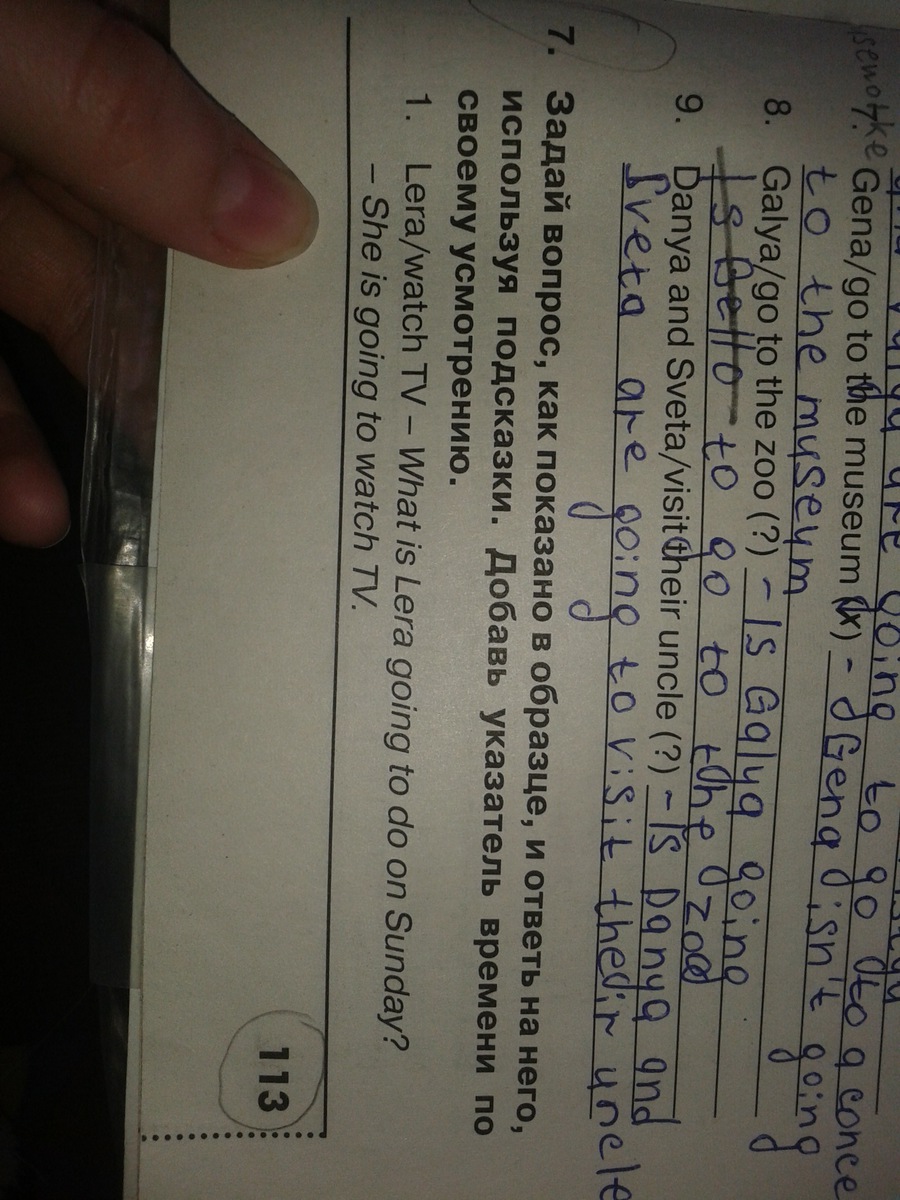 are going to go to a conce
Gena/go to the museum (x) - Gena isn't going
to the museum
8. Galya/go to the zoo (?) - Is Galya going
to go to the zoo
9. Danya and Sveta/visit their uncle (?) - Is Danya and
Sveta are going to visit their uncle
7. Задай вопрос, как показано в образце, и ответь на него,
используя подсказки. Добавь указатель времени по
своему усмотрению.
1. Lera/watch TV – What is Lera going to do on Sunday?
– She is going to watch TV.
113